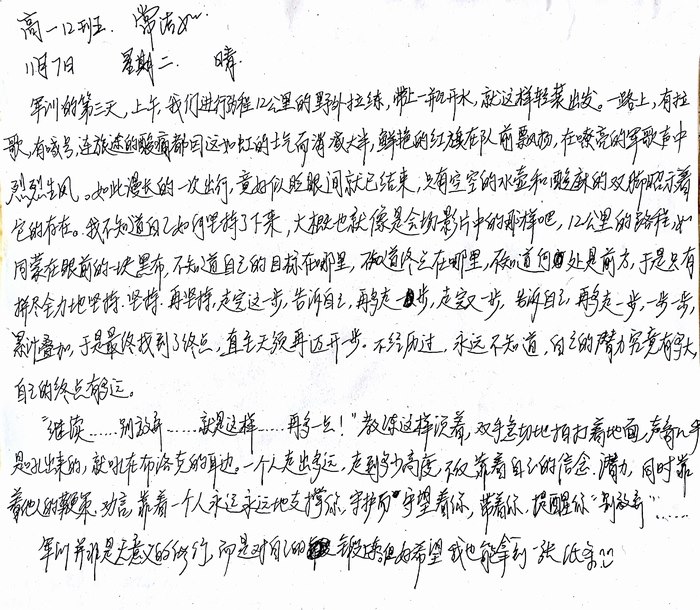 高一12班 常洁
11月7日 星期二 晴
军训的第三天,上午,我们进行了路程12公里的野外拉练,带上一瓶开水,就这样轻装出发。一路上,有拉
歌,有喊号,连旅途的酸痛都因这如虹的士气而消减大半,鲜艳的红旗在队前飘扬,在嘹亮的军歌声中
烈烈生风。如此漫长的一次出行,竟好似眨眼间就已结束,只有空空的水壶和酸麻的双脚昭示着
它的存在。我不知道自己如何坚持了下来,大概也就像是会场影片中的那样吧,12公里的路程,如
同蒙在眼前的一块黑布,不知道自己的目标在哪里,不知道终点在哪里,不知道何处是前方,于是只有
拼尽全力地坚持.坚持.再坚持,走完这一步,告诉自己,再多走一步,走完又一步,告诉自己,再多走一步,一步一步,
累计叠加,于是最终找到了终点,直至无须再迈开一步。不经历过,永远不知道,自己的潜力究竟有多大,
自己的终点有多远。
“继续……别放弃……就是这样……再多一点!”教练这样说着,双手急切地拍打着地面,声音几乎
是吼出来的,就吼在布洛克的耳边。一个人走出多远,走到多少高度,不仅靠着自己的信念.潜力,同时靠
着他人的鞭策.劝言,靠着一个人永远永远地支撑你,守护而守望着你,带着你,提醒你“别放弃”……
军训并非是无意义的修行,而是对自己的锻炼,但好希望我也能拿到一张